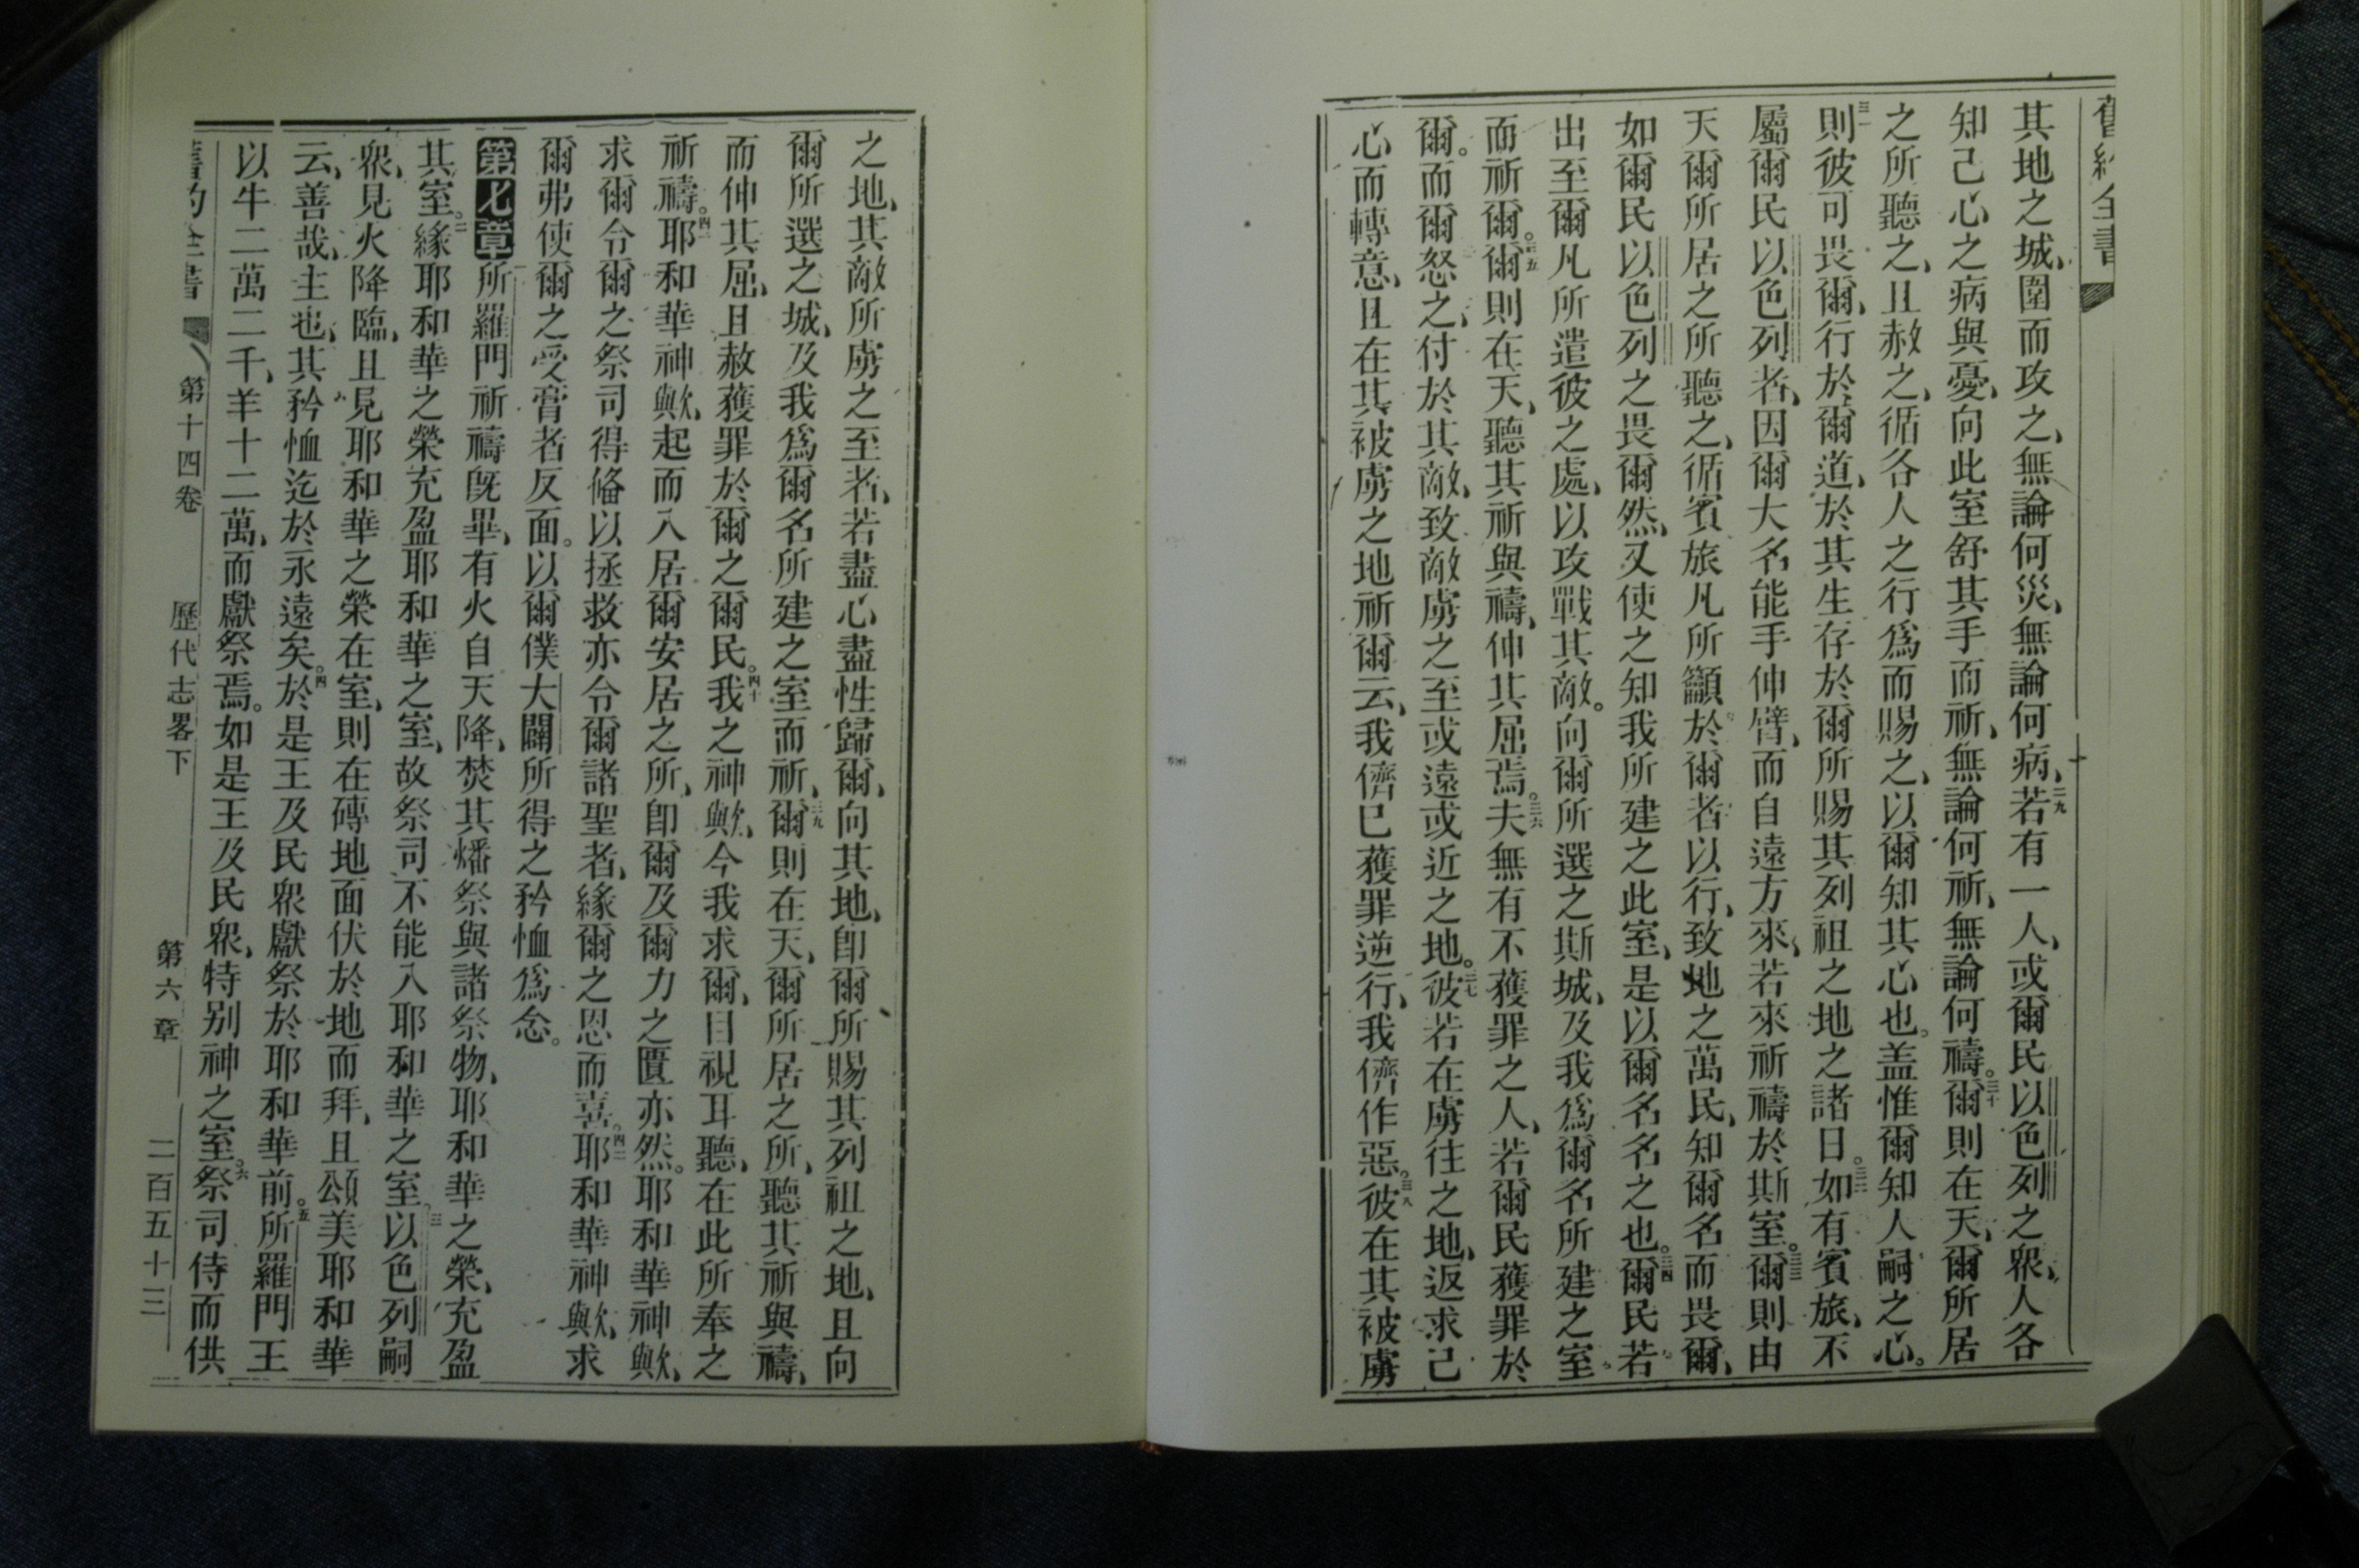 舊約全書
其地之城、圍而攻之、無論何災、無論何病、二九若有一人、或爾民以色列之衆、人各
知己心之病與憂、向此室舒其手而祈、無論何祈、無論何禱。三十爾則在天、爾所居
之所聽之、且赦之、循各人之行爲而賜之、以爾知其心也。盖惟爾知人嗣之心。
三一則彼可畏爾、行於爾道、於其生存於爾所賜其列祖之地之諸日。三二如有賓旅、不
屬爾民以色列者、因爾大名能手伸臂、而自遠方來、若來祈禱於斯室。三三爾則由
天爾所居之所聽之、循賓旅凡所籲於爾者以行、致地之萬民、知爾名而畏爾、
如爾民以色列之畏爾然、又使之知我所建之此室、是以爾名名之也。三四爾民若
出至爾凡所遣彼之處、以攻戰其敵。向爾所選之斯城、及我爲爾名所建之室
而祈爾。三五爾則在天、聽其祈與禱、伸其屈焉。三六夫無有不獲罪之人、若爾民獲罪於
爾。而爾怒之、付於其敵、致敵虜之至或遠或近之地。三七彼若在虜往之地、返求己
心而轉意、且在其被虜之地祈爾云、我儕已獲罪逆行、我儕作惡。三八彼在其被虜
之地、其敵所虜之至者、若盡心盡性歸爾、向其地、卽爾所賜其列祖之地、且向
爾所選之城、及我爲爾名所建之室而祈、三九爾則在天、爾所居之所、聽其祈與禱、
而伸其屈、且赦獲罪於爾之爾民。四十我之神歟、今我求爾、目視耳聽、在此所奉之
祈禱。四一耶和華神歟、起而入居爾安居之所、卽爾及爾力之匱亦然。耶和華神歟、
求爾令爾之祭司得俻以拯救亦令爾諸聖者、緣爾之恩而喜。四二耶和華神歟、求
爾弗使爾之受膏者反面。以爾僕大闢所得之矜恤爲念。
第七章所羅門祈禱旣畢、有火自天降、焚其燔祭與諸祭物、耶和華之榮、充盈
其室。二緣耶和華之榮充盈耶和華之室、故祭司不能入耶和華之室。三以色列嗣
衆、見火降臨、且見耶和華之榮在室、則在磚地面伏於地而拜、且頌美耶和華
云、善哉、主也、其矜恤迄於永遠矣。四於是王及民衆獻祭於耶和華前。五所羅門王
以牛二萬二千、羊十二萬、而獻祭焉。如是王及民衆、特别神之室。六祭司侍而供
舊約全書 第十四卷 歷代志畧下 第六章 二百五十三